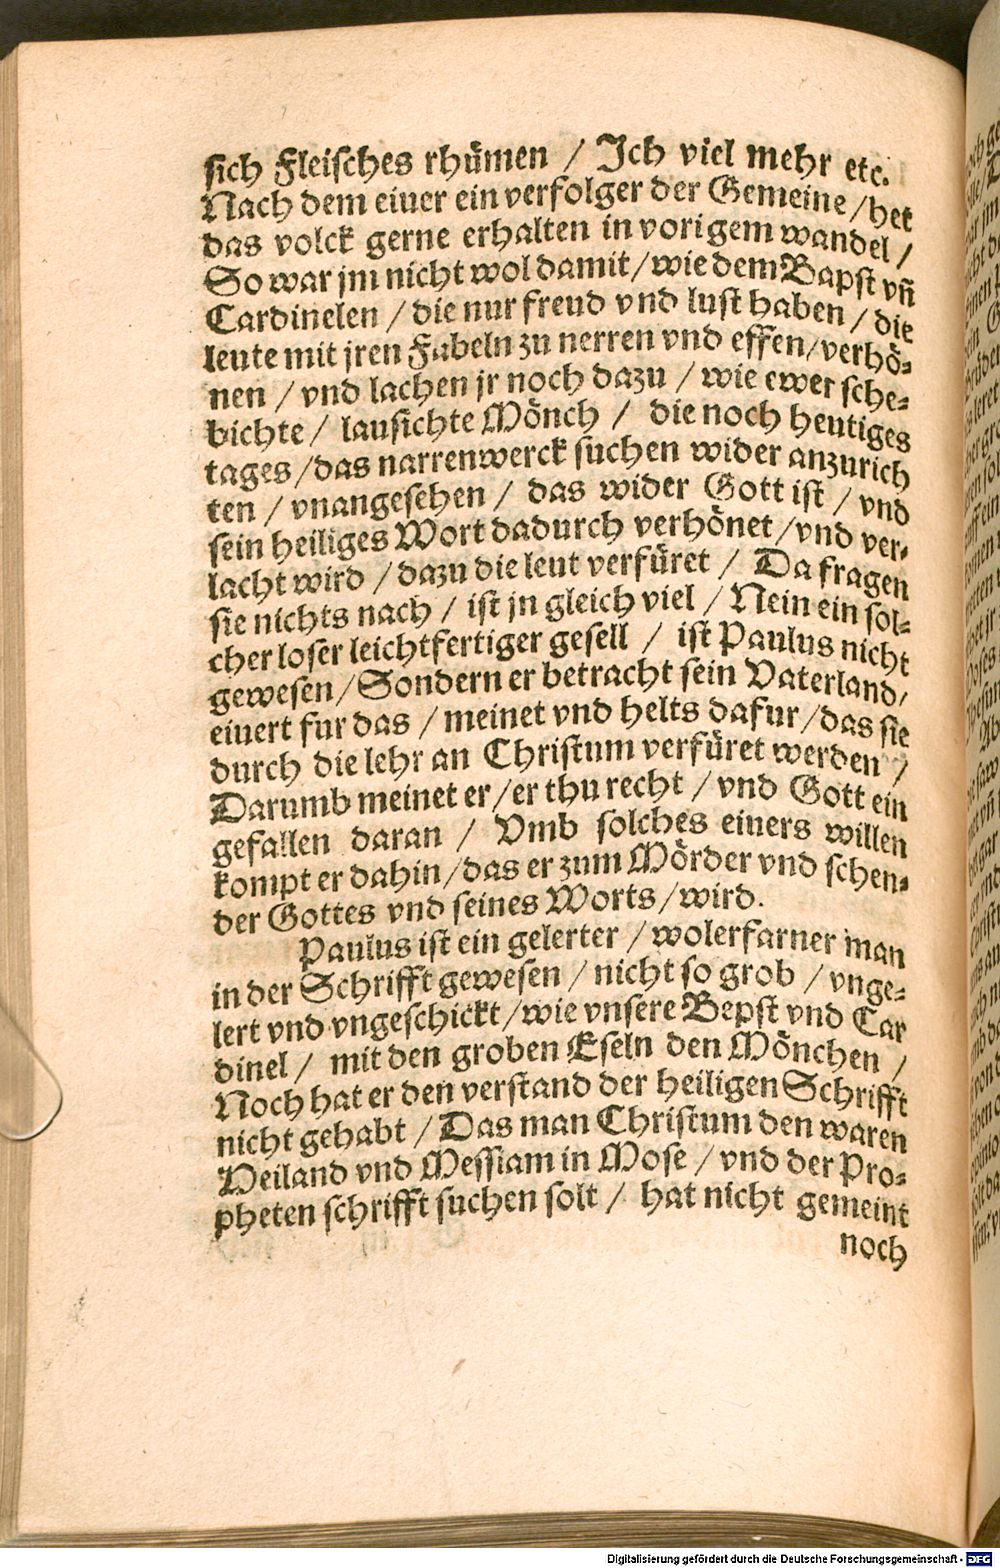 sich Fleisches rhümen / Ich viel mehr etc.
Nach dem eiuer ein verfolger der Gemeine / het
das volck gerne erhalten in vorigem wandel /
So war jm nicht wol damit / wie dem Bapst vñ
Cardinelen / die nur freud vnd lust haben / die
leute mit jren Fabeln zu nerren vnd effen / verhö⸗
nen / vnd lachen jr noch dazu / wie ewer sche⸗
bichte / lausichte Mönch / die noch heutiges
tages / das narrenwerck suchen wider anzurich
ten / vnangesehen / das wider Gott ist / vnd
sein heiliges Wort dadurch verhönet / vnd ver⸗
lacht wird / dazu die leut verfüret / Da fragen
sie nichts nach / ist jn gleich viel / Nein ein sol⸗
cher loser leichtfertiger gesell / ist Paulus nicht
gewesen / Sondern er betracht sein Vaterland /
eiuert fur das / meinet vnd helts dafur / das sie
durch die lehr an Christum verfüret werden /
Darumb meinet er / er thu recht / vnd Gott ein
gefallen daran / Vmb solches eiuers willen
kompt er dahin / das er zum Mörder vnd schen⸗
der Gottes vnd seines Worts / wird.
Paulus ist ein gelerter / wolerfarner man
in der Schrifft gewesen / nicht so grob / vnge⸗
lert vnd vngeschickt / wie vnsere Bepst vnd Car
dinel / mit den groben Eseln den Mönchen /
Noch hat er den verstand der heiligen Schrifft
nicht gehabt / Das man Christum den waren
Heiland vnd Messiam in Mose / vnd der Pro⸗
pheten schrifft suchen solt / hat nicht gemeint
noch
Digitalisierung gefördert durch die Deutsche Forschungsgemeinschaft - DFG